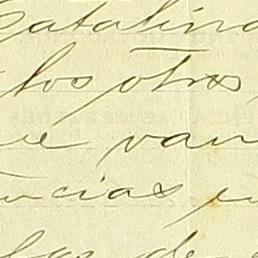 Catalina
los otros
ue van
ncias y
las de